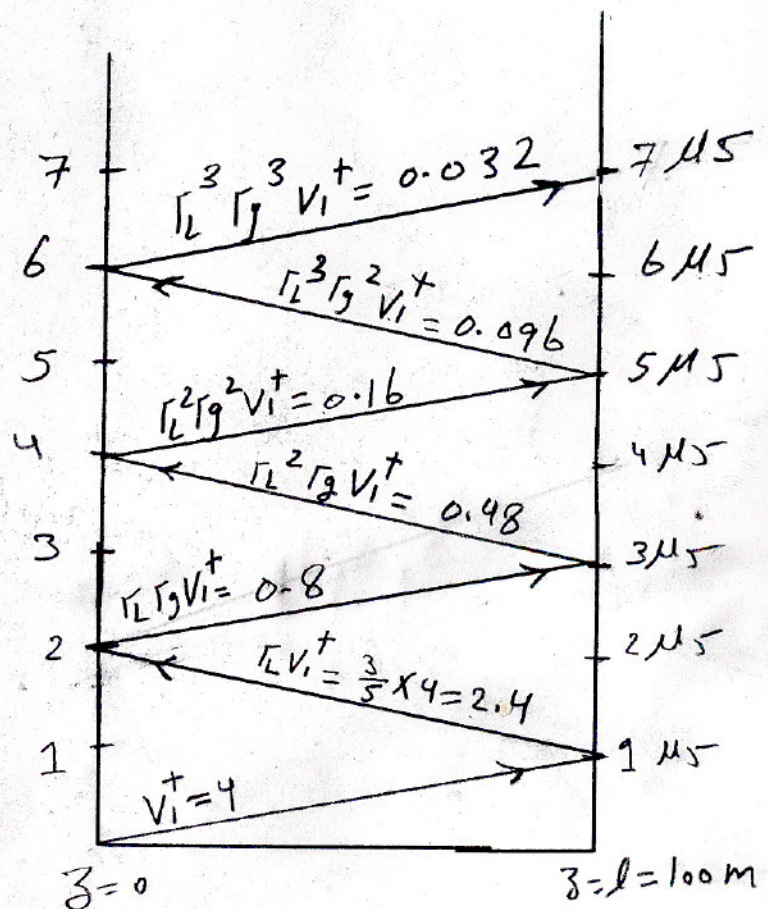 7 Γ_L^3 Γg^3 V1^+ = 0.032 7 μs
6 Γ_L^3 Γg^2 V1^+ = 0.096 6 μs
5 Γ_L^2 Γg^2 V1^+ = 0.16 5 μs
4 Γ_L^2 Γg V1^+ = 0.48 4 μs
3 Γ_L Γg V1^+ = 0.8 3 μs
2 Γ_L V1^+ = 3/5 × 4 = 2.4 2 μs
1 V1^+ = 4 1 μs
z=0 z=l=100m